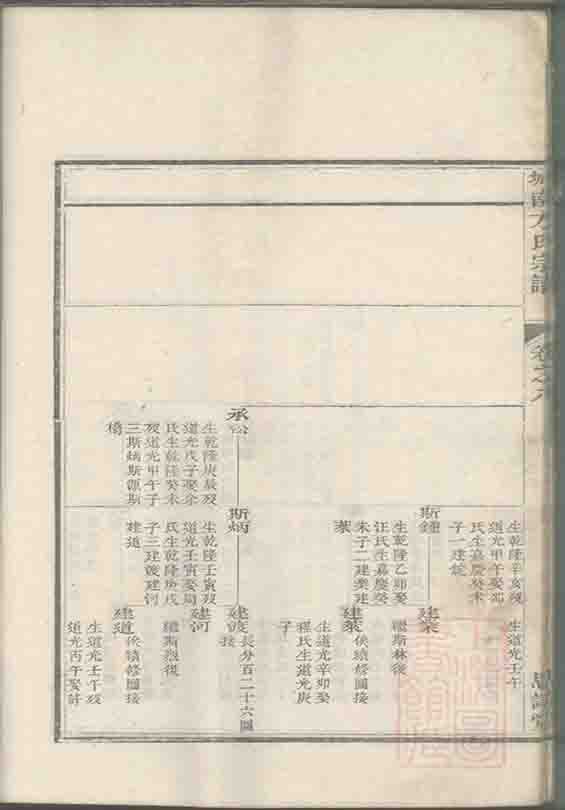 城南方氏宗譜
卷之八
生乾隆辛亥歿
道光甲午娶鄭
氏生嘉慶癸未
子一建錠
生道光壬午
斯鍾
生乾隆乙卯娶
汪氏生嘉慶癸
朱子二建業建
萊
建業
繼斯林後
建萊
俟續修圖接
生道光辛卯娶
程氏生道光庚
子
承公
生乾隆庚辰歿
道光戊子娶余
氏生乾隆癸未
歿道光甲午子
三斯炳斯
斯炳
生乾隆壬寅歿
道光壬寅娶周
氏生乾隆庚戌
子三建
建河
建道
長分百二十六圖
接
建河
繼斯
後
建道
俟續修圖接
生道光壬午歿
道光丙午娶許